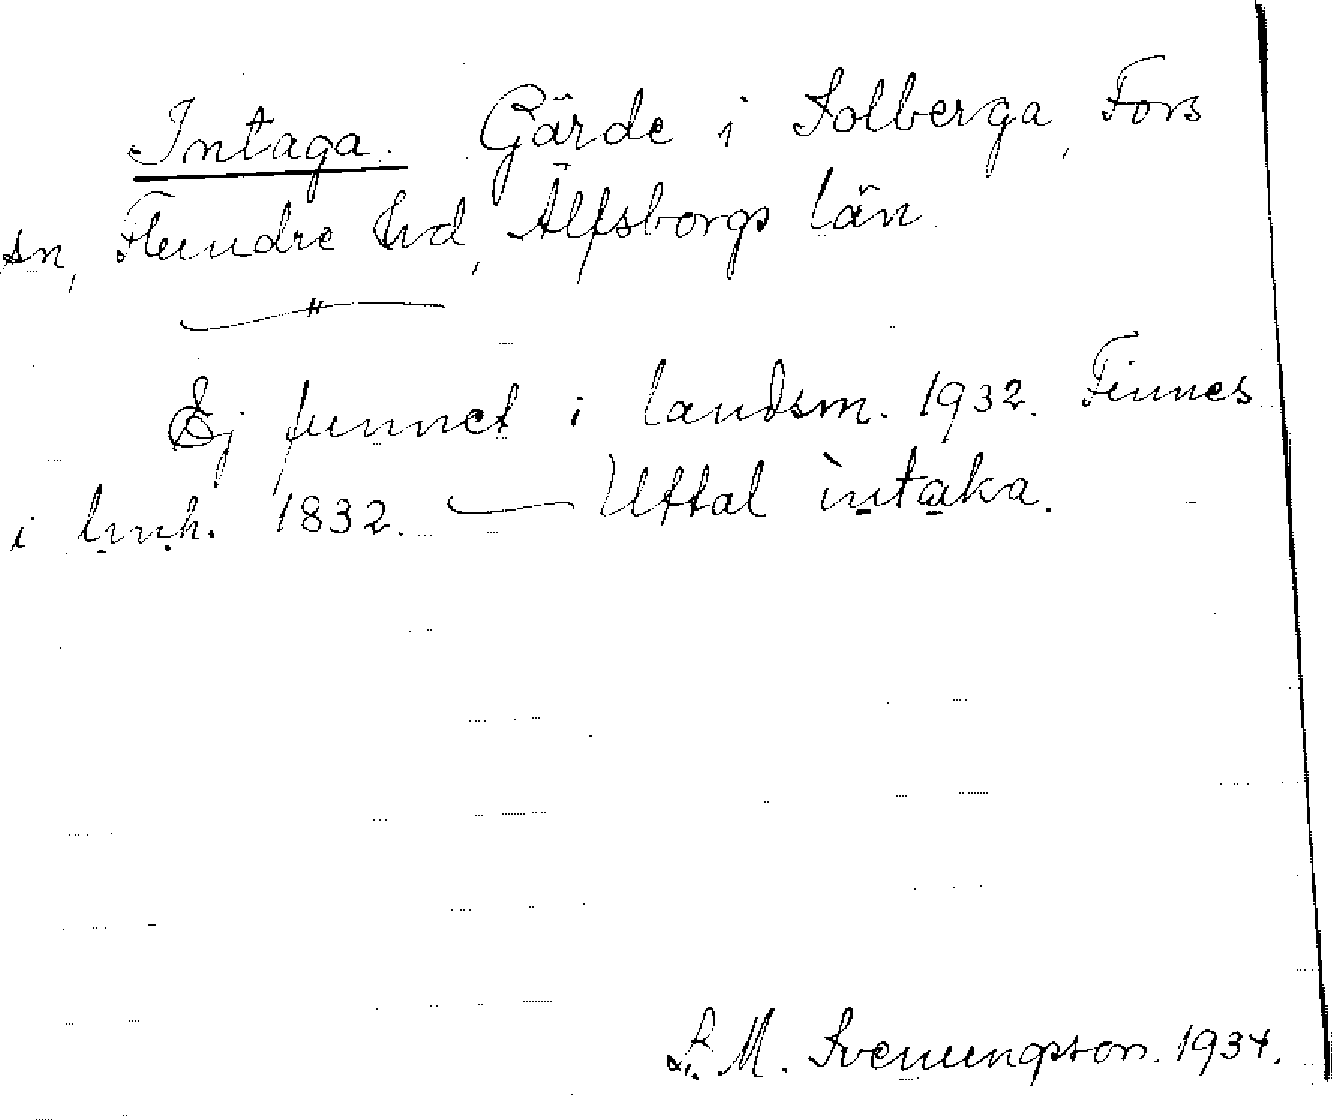 Intaga. Gärde i Solberga, Fors
sn, Flundre hd, Älfsborgs län.
Ej funnet i landsm. 1932. Finnes
i lmh. 1832. — Uttal ìntaka.
L. M. Svenungsson. 1934.